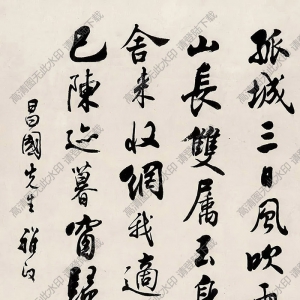 孤城三日風吹雨
山長雙属玉
舍来收網我適
已陳迹暮窗歸
昌國先生雅正